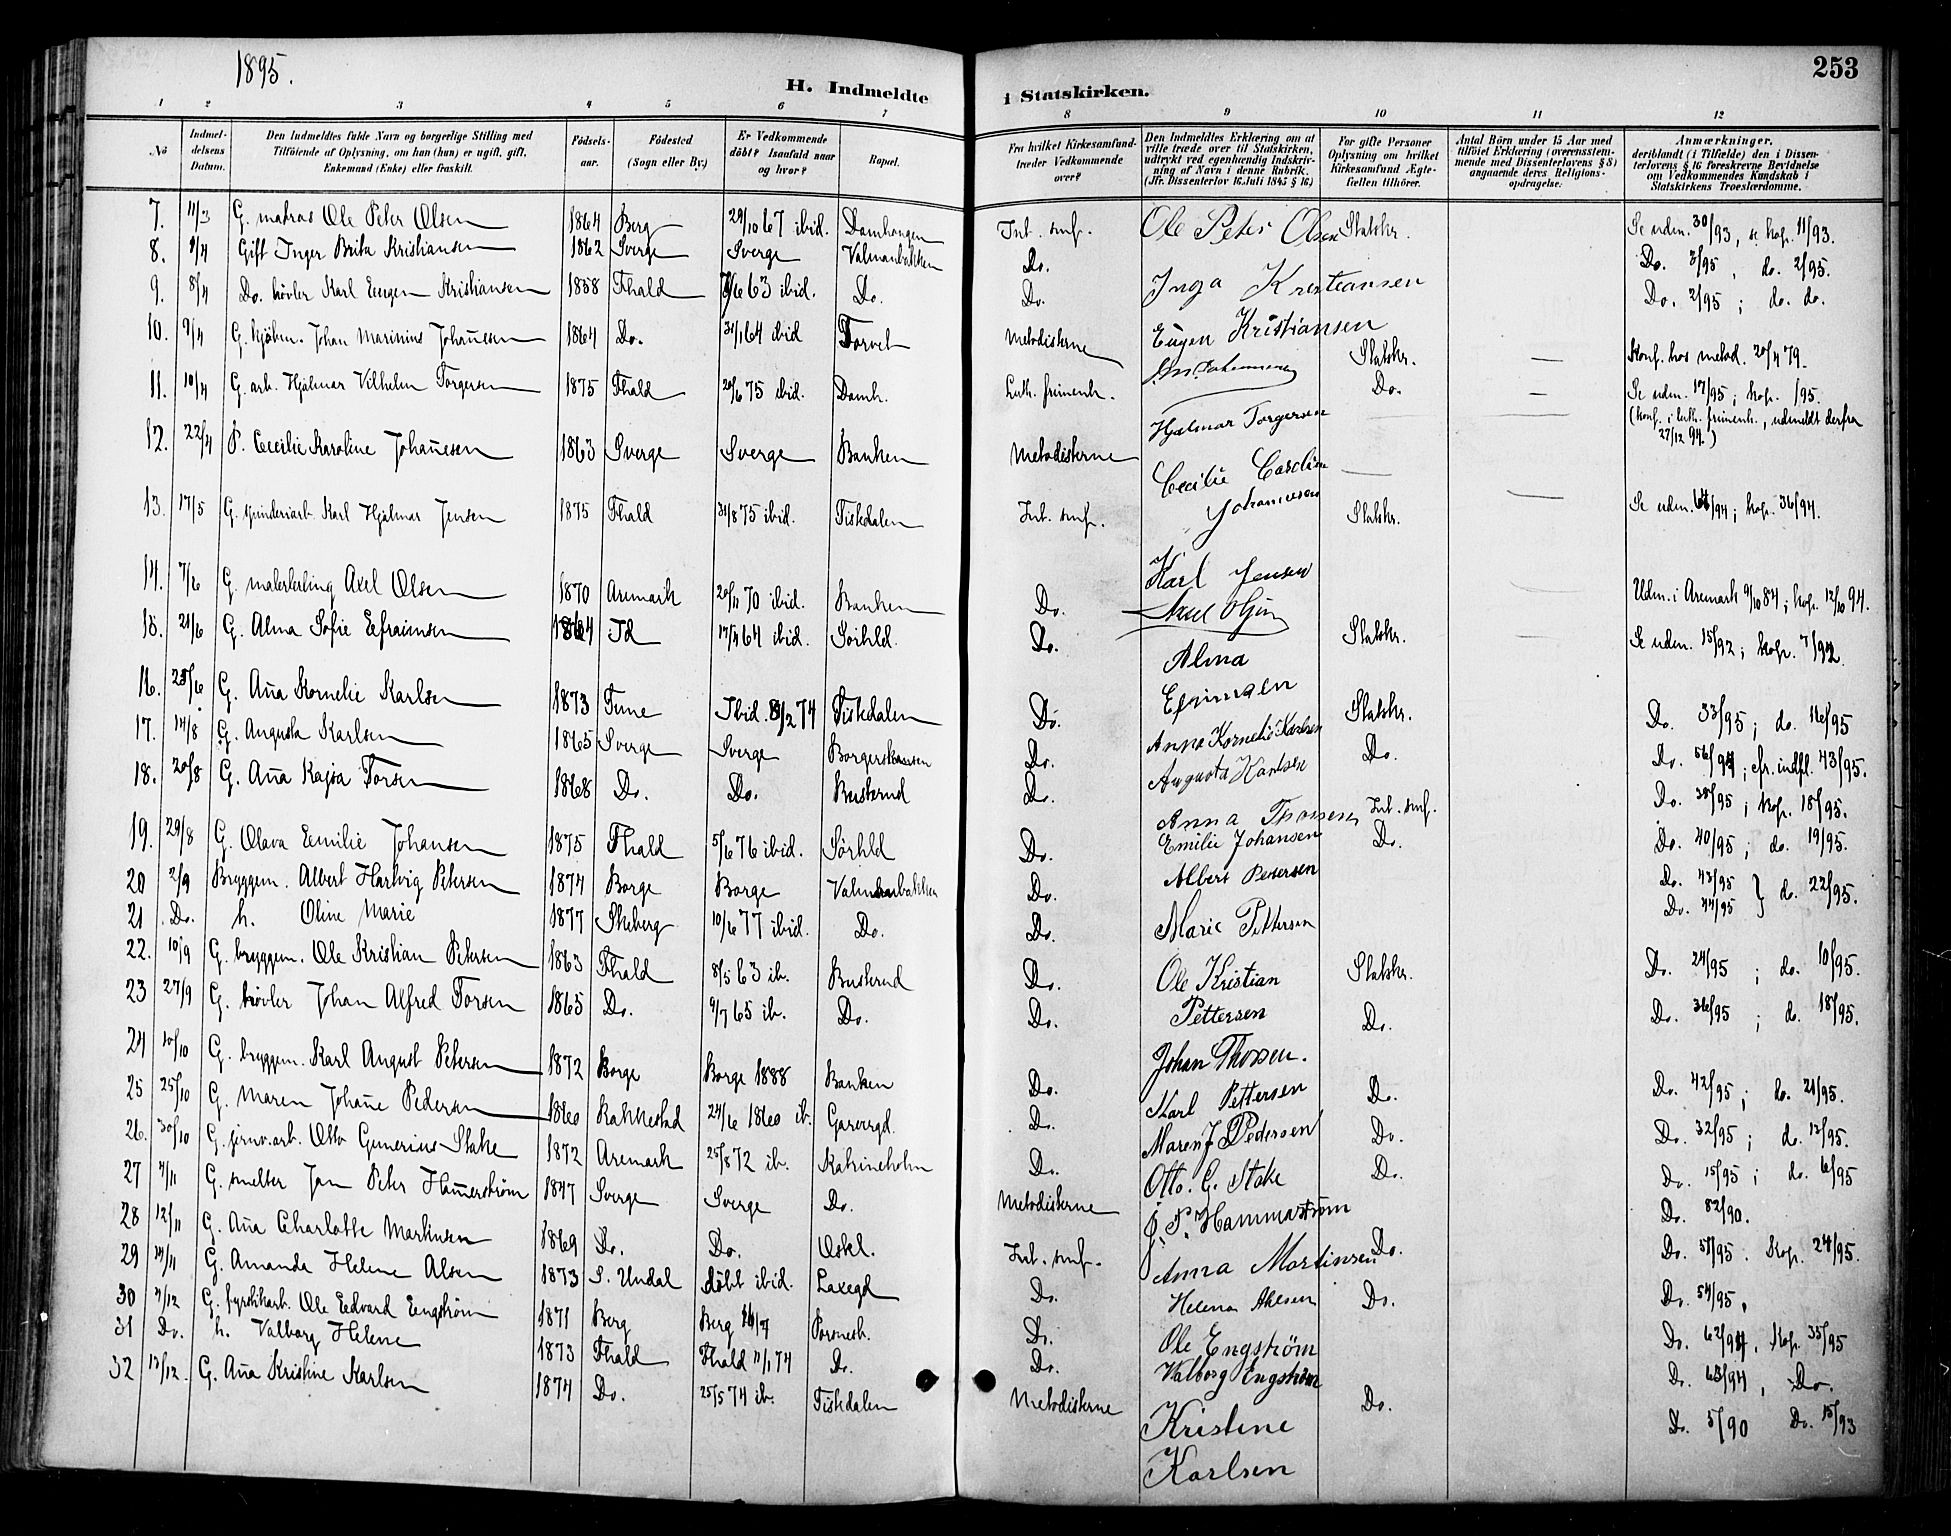 1895.
H. Indmeldte i Statskirken.
253
1 2 3 4 5 6 7 8 9 10 11 12
No
Indmel-
delsens
Datum.
Den Indmeldtes fulde Navn og borgerlige Stilling med
Tilföiende af Oplysning, om han (hun) er ugift, gift,
Enkemand (Enke) eller fraskilt.
Födsels-
aar.
Födested
(Sogn eller By.)
Er Vedkommende
döbt? Isaafald naar
og hvor?
Bopæl.
Fra hvilket Kirkesamfund
træder Vedkommende
over?
Den Indmeldtes Erklæring om at
ville træde over til Statskirken,
udtrykt ved egenhændig Indskriv-
ning af Navn i denne Rubrik.
(Jfr. Dissenterlov 16.Juli 1845 § 16.)
For gifte Personer
Oplysning om hvilket
Kirkesamfund Ægte-
fællen tilhörer.
Antal Börn under 15 Aar med
tilföiet Erklæring (overensstem-
mende med Dissenterlovens § 8)
angaaende deres Religions-
opdragelse.
Anmærkninger,
deriblandt (i Tilfælde) den i Dissen-
terlovens § 16 foreskrevne Bevidnelse
om Vedkommendes Kundskab i
Statskirkens Troeslærdomme.
7. 11/3 G. matros Ole Peter Olsen 1864 Berg 29/10 67 ibid. Damhaugen Int. smf. Ole Peter Olsen Statskr. Se udm. 30/93, se kop. 11/93.
8. 9/4 Gift Inger Brita Kristiansen 1862 Sverge Sverge Valmanbakken Do. Inga Kristiansen Do. 3/95, do. 2/95.
9. 8/4 Do. høvler Karl Eugen Kristiansen 1858 Fhald 63 ibid. Do. Do. Eugen Kristiansen Do. 2/95; do. do.
10. 9/4 G. kjøbm. Johan Marinius Johannesen 1864 Do. 31/1 64 ibid Torvet Metodisterne Statskr. — Konf. hos metod. 20/4 79.
11. 10/4 G. arb. Hjalmar Vilhelm Torgersen 1875 Fhald 20/6 75 ibid. Damh. Luth. frimenh. Hjalmar Torgersen Do. — Se udm. 17/95; kop. /95.
(konf. i luth. frimenh., udmeldt derfra
27/12 94.)
12. 22/4 P. Cecilie Karoline Johannesen 1863 Sverge Sverge Banken Metodisterne Cecilie Caroline
Johannesen
13. 17/5 G. spinderiarb. Karl Hjalmar Jensen 1875 Fhald 31/8 75 ibid. Fiskdalen Int. smf. Karl Jensen Statskr. Se udm. /94; kop. 36/94.
14. 7/6 G. malerlerling Axel Olsen 1870 Aremark 20/11 70 ibid. Banken Do. Axel Olsen Udm. i Aremark 9/10 84; kop. 12/10 94.
15. 21/6 G. Alma Sofie Eefraimsen 1864 Id 17/4 64 ibid. Sørhld. Do. Alma
Efrimsen Statskr. Se udm. 15/92; kop. 7/92.
16. 25/6 G. Anna Kornelie Karlsen 1873 Tune Ibid. 8/2 74 Fiskdalen Do. Anna Kornelie Karlsen Statskr. Do. 33/95; do. 16/95
17. 14/8 G. Augusta Karlsen 1865 Sverge Sverge Borgerskansen Do. Augusta Karlsen Do. Do. 56/94; cfr. indfl. 43/95.
18. 20/8 G. Anna Kajsa Torsen 1868 Do. Do. Busterud Do. Anna Thorsen Int. smf. Do. 35/95; kop. 18/95.
19. 29/8 G. Olava Eemilie Johansen 1875 Fhald 5/6 76 ibid. Sørhld Do. Emilie Johansen Do. Do. 40/95; do. 19/95.
20 2/9 Bryggem. Albert Hartvig Petersen 1874 Borge Borge Valmanbakken Do. Albert Petersen Do. 43/95 } do. 22/95.
21 Do. h. Oline Marie 1877 Skeberg 10/6 77 ibid. Do. Do. Marie Pettersen Do. 44/95
22. 10/9 G. bryggem. Ole Kristian Petersen 1863 Fhald 8/5 63 ib. Busterud Do. Ole Kristian
Pettersen Statskr. Do. 24/95; do. 10/95.
23 27/9 G. høvler Johan Alfred Torsen 1865 Do. 9/7 65 ib. Do. Do. Johan Thorsen. Do. Do. 36/95; do. 18/95.
24 10/10 G. bryggem. Karl August Petersen 1872 Borge Borge 1888 Banken Do. Karl Pettersen Do. Do. 42/95; do. 21/95.
25 25/10 G. Maren Johanne Pedersen 1860 Rakkestad 24/6 1860 ib. Garvergd. Do. Maren J Pedersen Do. Do. 32/95; do. 12/95.
26. 30/10 G. jernv.arb. Otto Gunerius Stake 1872 Aremark 25/8 72 ib. Katrineholm Do. Otto. G. Stake Do. Do. 15/95; do. 6/95
27 4/11 G. smelter Jan Peter Hamerstrøm 1847 Sverge Sverge Do. Metodisterne J. P. Hammarstrøm Do. 82/90.
28 12/11 G. Anna Charlotte Martinsen 1869 Do. Do. Oskl. Int. smf. Anna Martinsen Do. Do. 51/95. Kop. 24/95.
29 14/11 G. Amanda Helene Alsen 1873 S. Undal døbt ibid. Laxegd Do. Helena Ahlsen Do. Do. 54/95.
30 4/12 G. fyrstikarb. Ole Eedvard Eengstrøm 1871 Berg Berg Porsnesh. Do. Ole Engstrøm Do. 62/94. Kop. 35/95
31 Do. h. Valborg Helene 1873 Fhald Fhald 11/1 74 Do. Do. Valborg Engstrøm Do. 63/94, Do.
32 13/12. G. Anna Kristine Karlsen 1874 Do. 25/5 74 ib. Fiskdalen Metodisterne Kristine
Karlsen Do. Do. 5/90 Do. 15/93